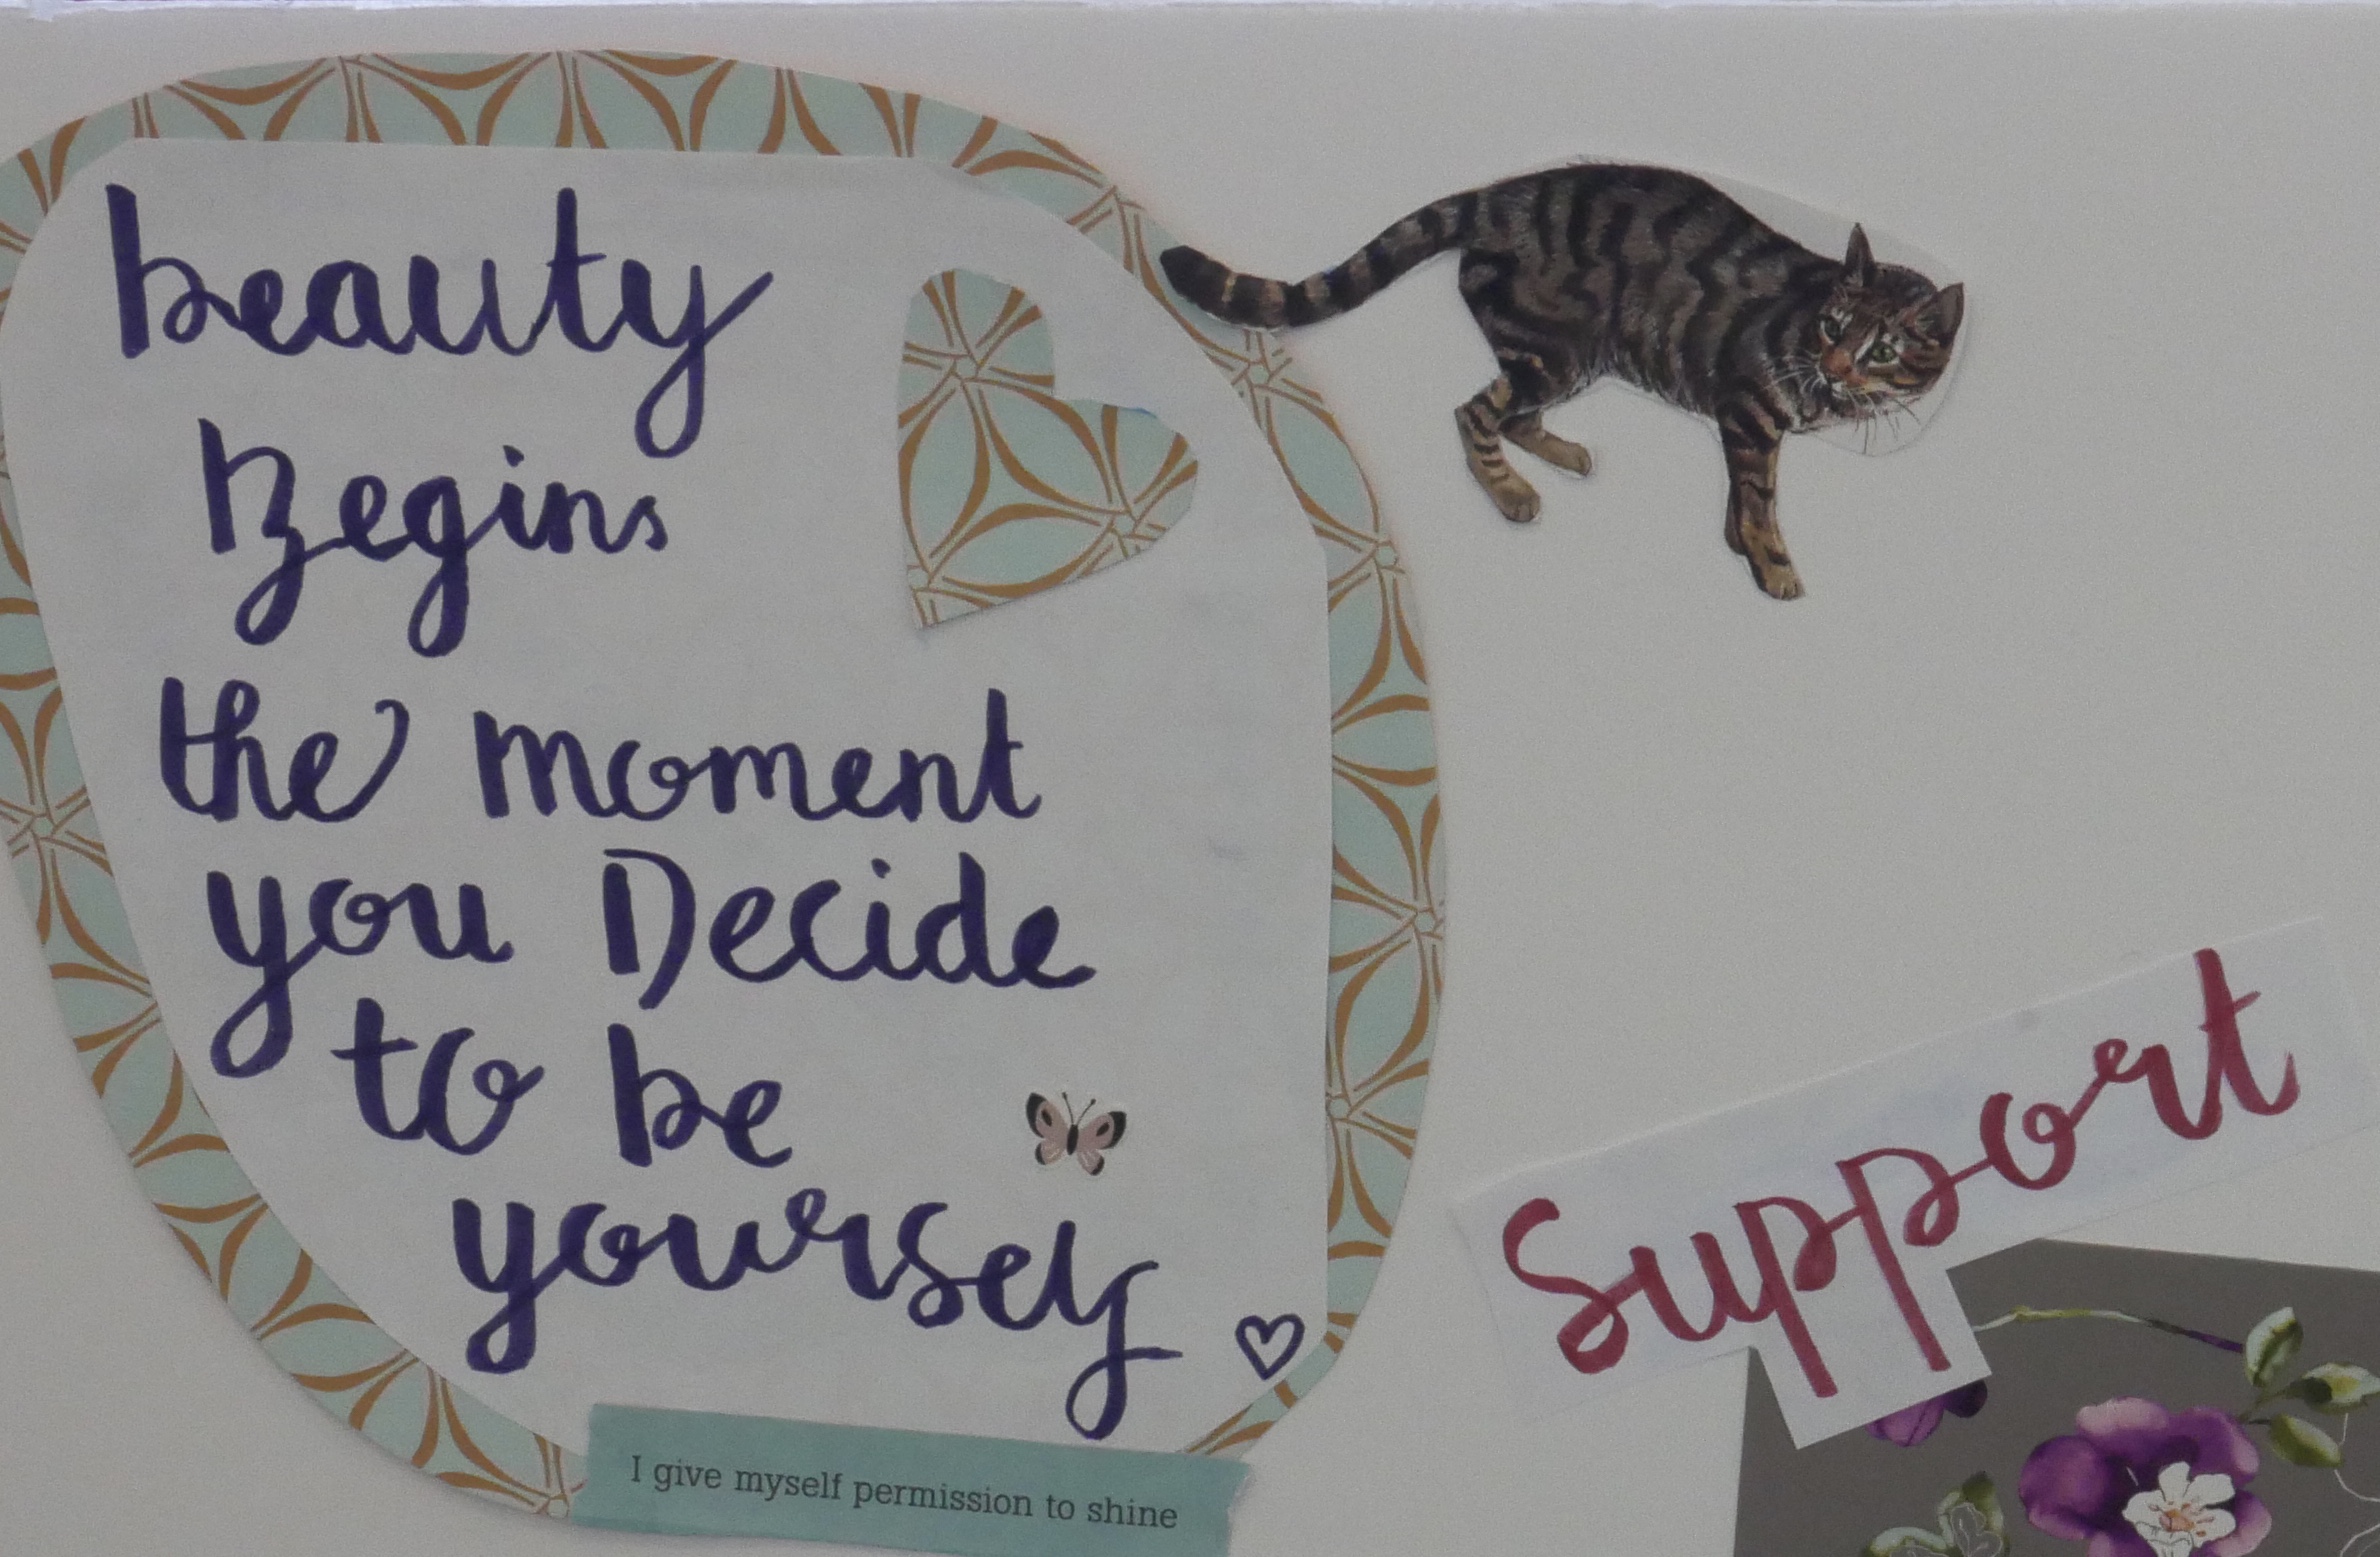 beauty
Begins
the moment
you Decide
to be
yourself
I give myself permission to shine
Support